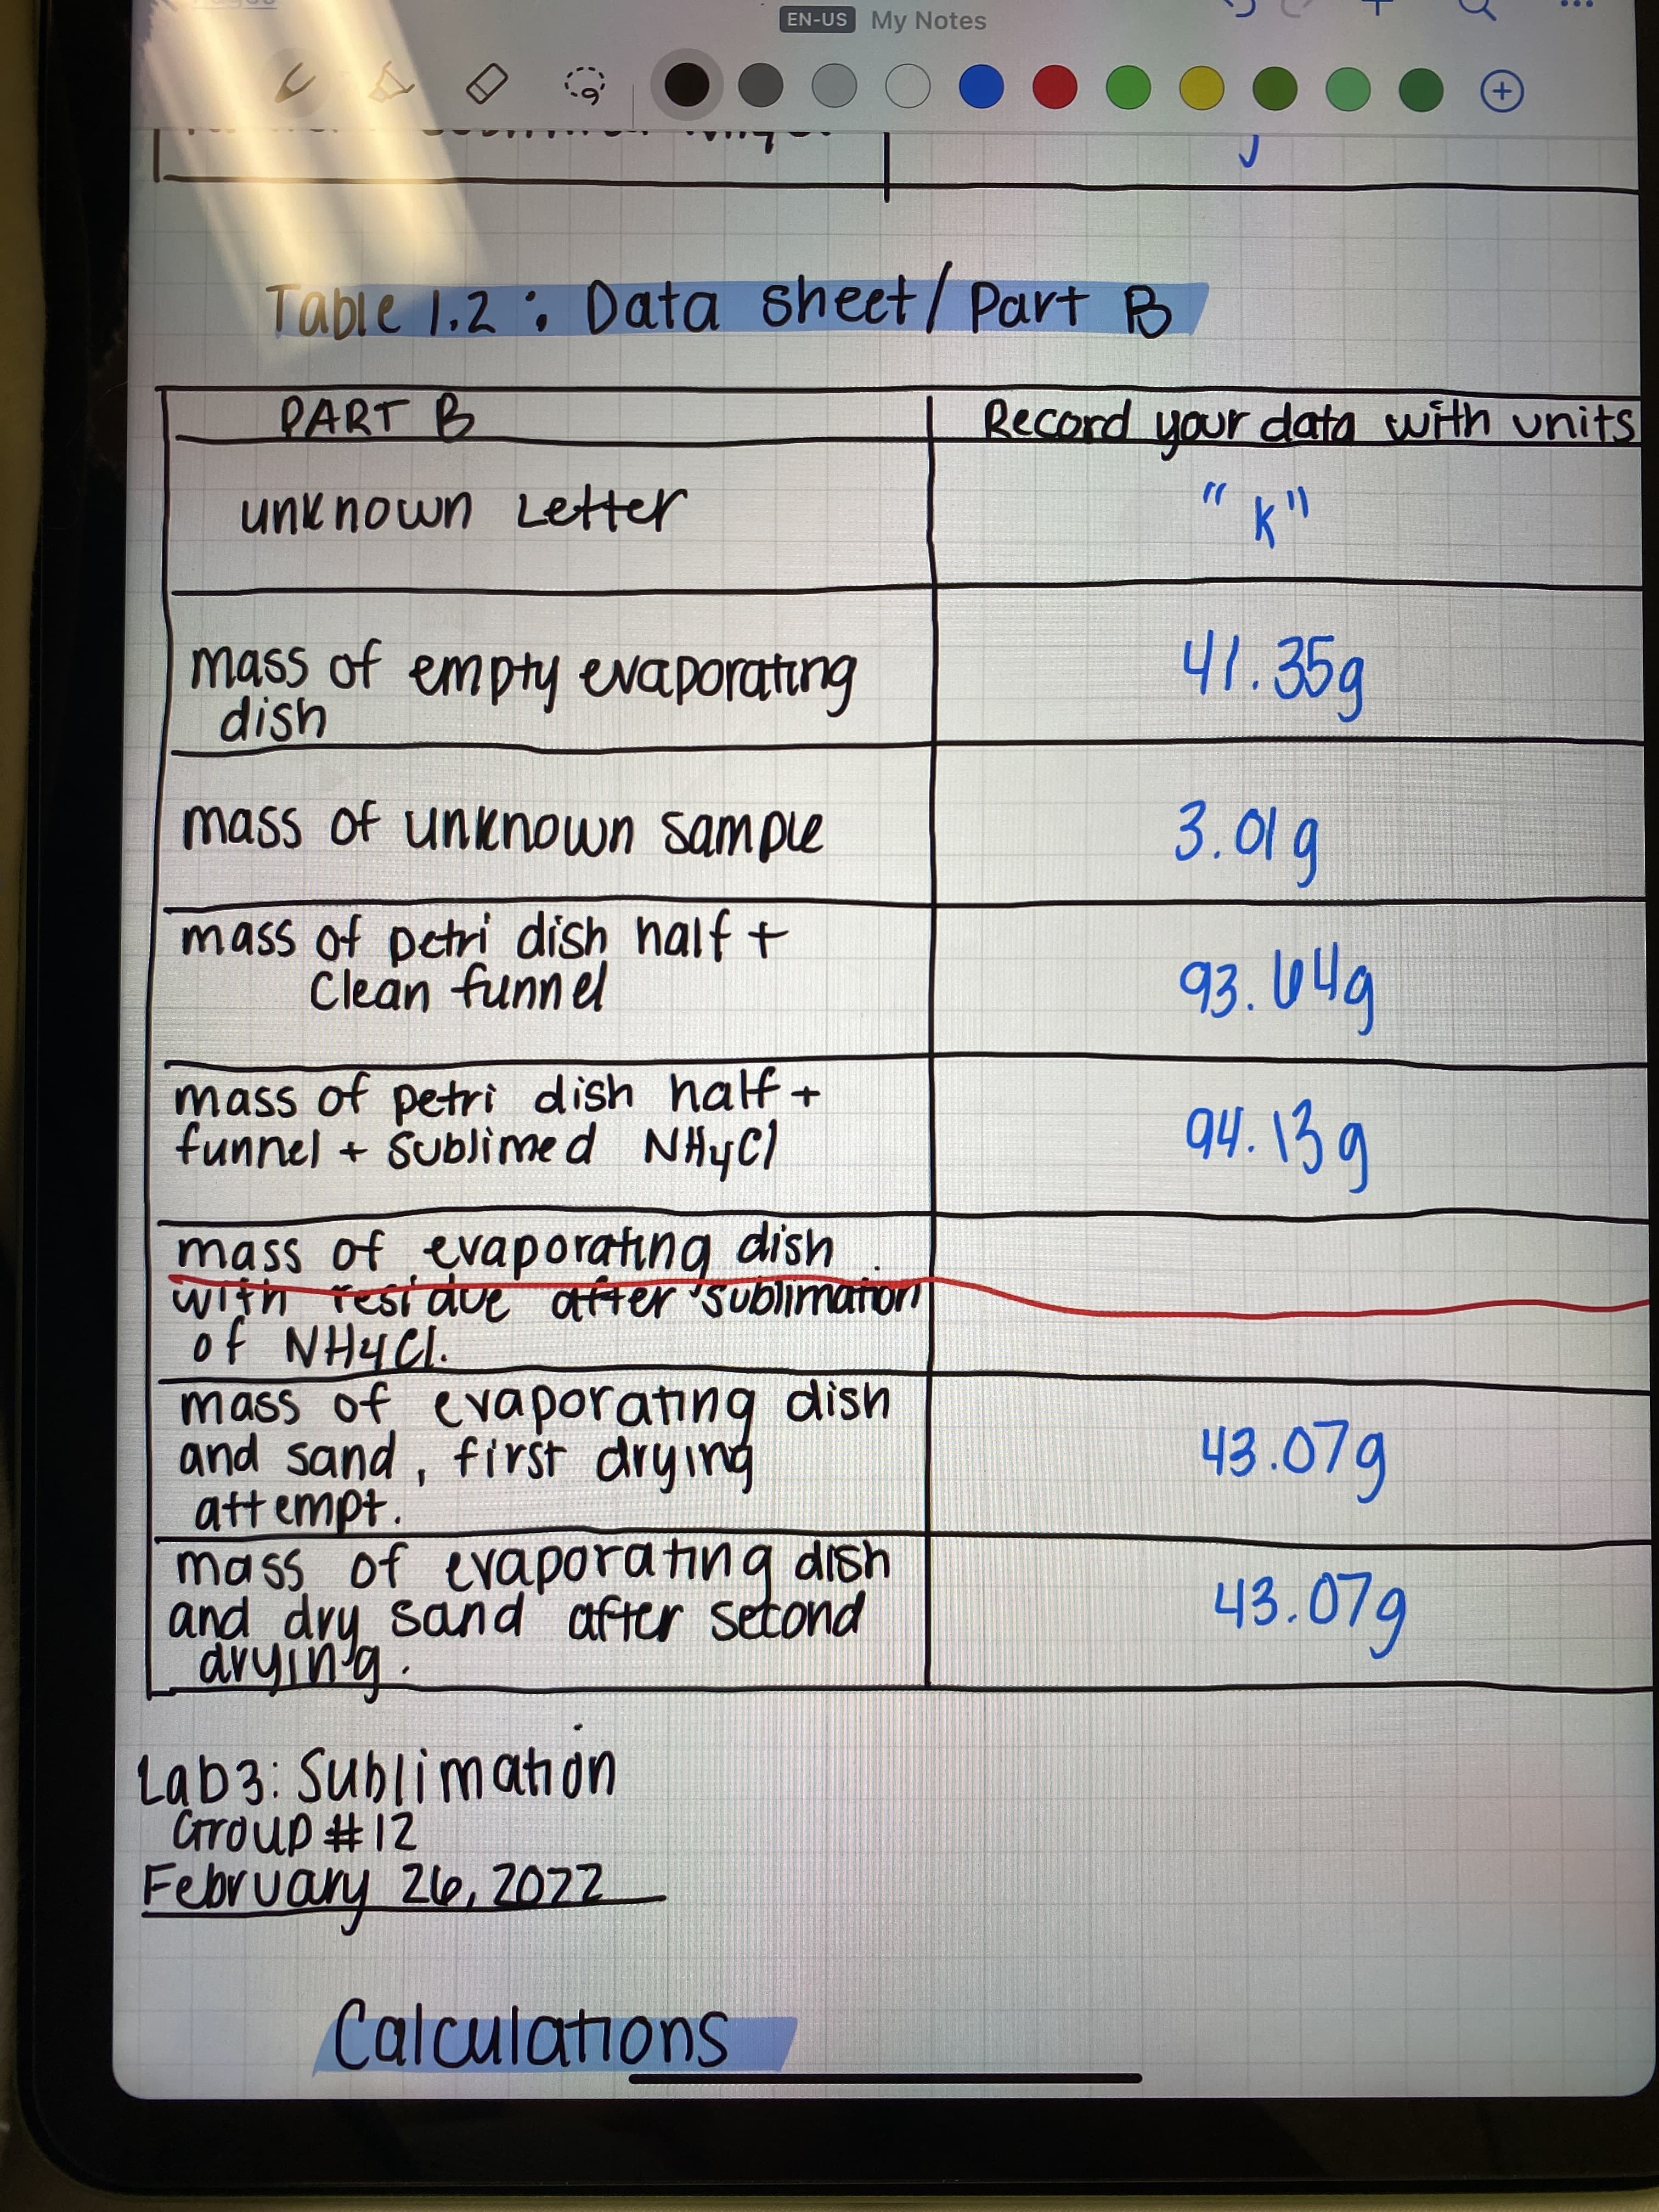 EN-US My Notes
Table 1.2 : Data sheet / Part B
PART B
Record your data with units
unknown Letter
"K"
mass of empty evaporating
dish
41.35g
mass of unknown sample
3.01g
mass of petri dish half +
Clean funnel
93.64g
mass of petri dish half +
funnel + sublimed NH4Cl
94.13g
mass of evaporating dish
with residue after sublimation
of NH4Cl.
mass of evaporating dish
and sand, first drying
attempt.
43.07g
mass of evaporating dish
and dry sand after second
drying.
43.07g
Lab3: Sublimation
Group #12
February 26, 2022
Calculations